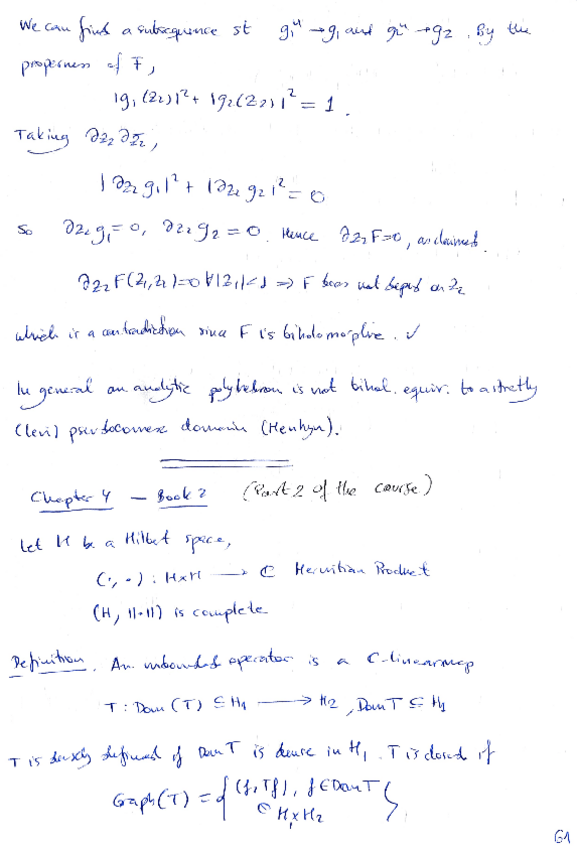 We can find a subsequence st g₁ⁿ → g₁ and g₂ⁿ → g₂. By the
properness of F,
|g₁(z₂)|² + |g₂(z₂)|² = 1.
Taking ∂z₂ ∂z̄₂,
|∂z₂ g₁|² + |∂z₂ g₂|² = 0
So ∂z₂ g₁ = 0, ∂z₂ g₂ = 0. Hence ∂z₂F=0, as claimed.
∂z₂F(z₁,z₂)=0 ∀|z₁|<1 ⇒ F does not depend on z₂
which is a contradiction since F is biholomorphic. ✓
In general an analytic polyhedron is not bihol. equiv. to a strictly
(Levi) pseudoconvex domain (Henkin).
Chapter 4 — Book 2 (Part 2 of the course)
Let H be a Hilbert space,
(·, ·) : H×H → ℂ Hermitian Product
(H, ||·||) is complete
Definition. An unbounded operator is a ℂ-linear map
T : Dom (T) ⊆ H₁ → H₂, Dom T ⊆ H₁
T is densely defined if Dom T is dense in H₁. T is closed if
Graph(T) = { (f, Tf), f ∈ Dom T }
⊂ H₁×H₂
61